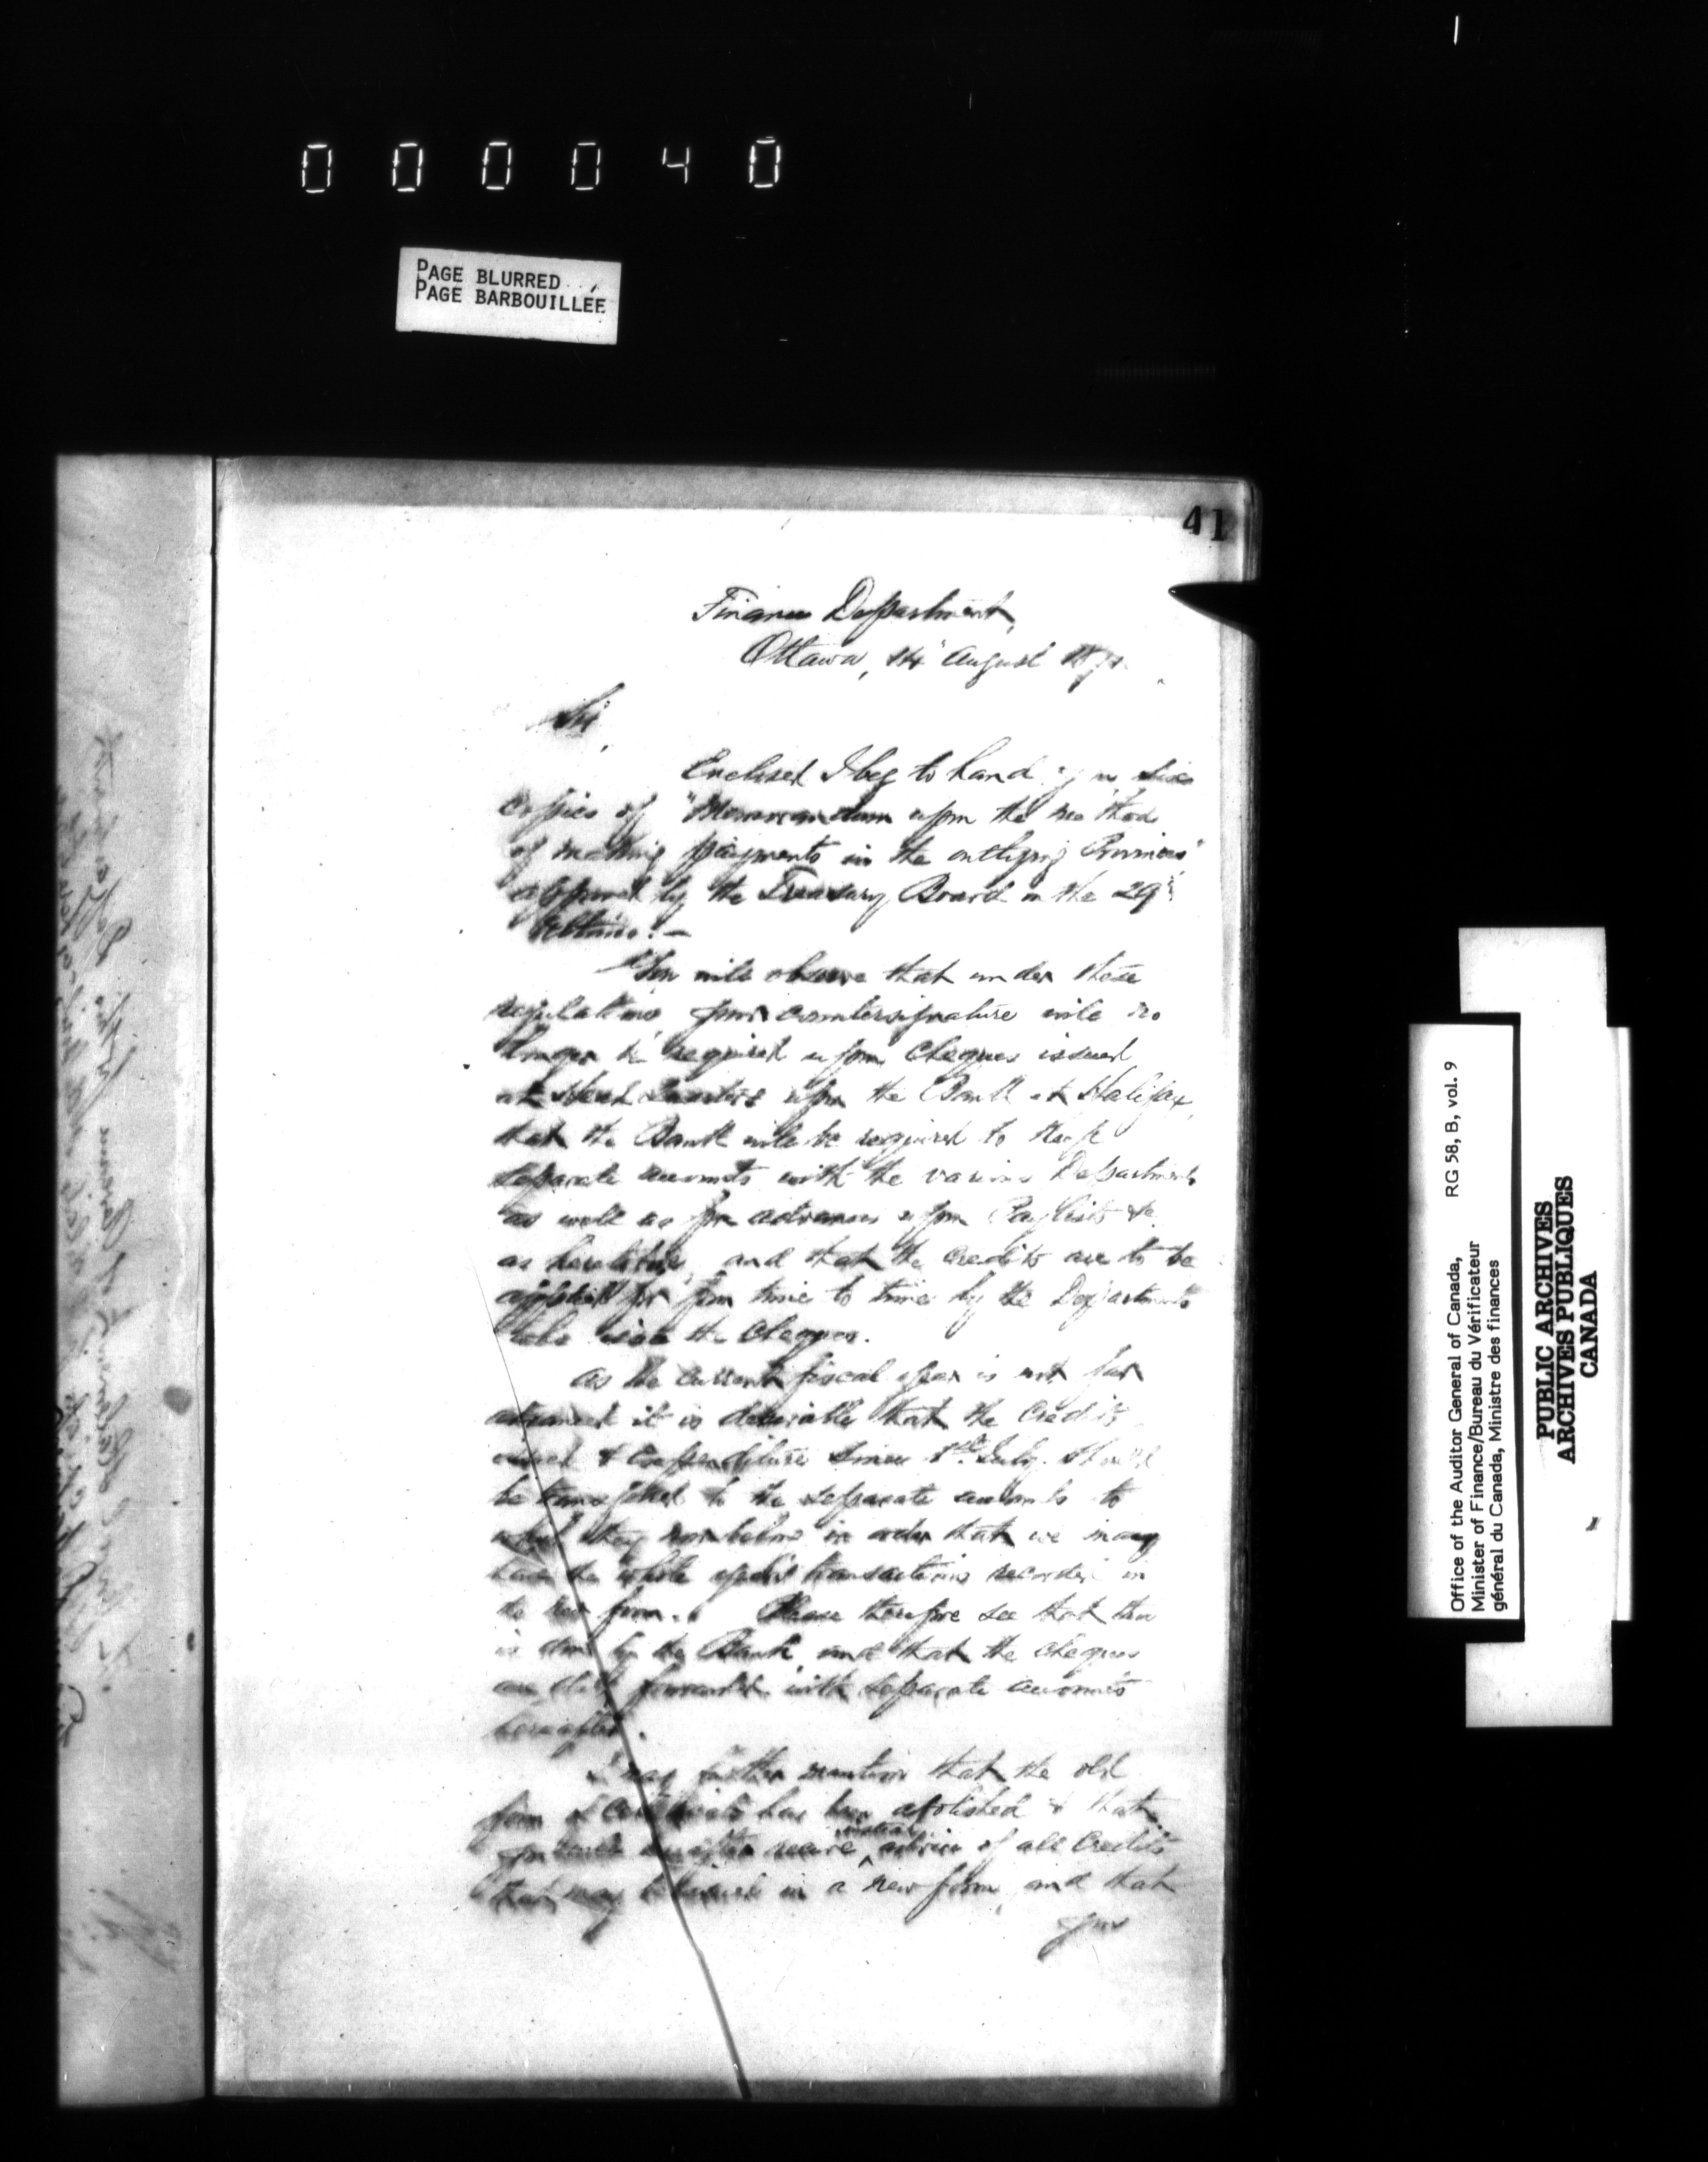 000040
PAGE BLURRED
PAGE BARBOUILLÉE
41
Finance Department,
Ottawa, 14" August 187
Sir,
Enclosed I beg to hand you six
copies of "Memorandum upon the method
of making payments in the outlying Provinces"
approved by the Treasury Board on the 29"
Ultimo. -
You will observe that under these
regulations your countersignature will no
longer be required upon Cheques issued
at Head Quarters upon the Bank at Halifax,
that the Bank will be required to keep
separate accounts with the various Departments
as well as for advances upon Pay lists &c
as heretofore, and that the Credits are to be
applied for from time to time by the Departments
who issue the Cheques.
As the current fiscal year is not far
advanced it is desirable that the Credits
issued & Expenditure since 1st July should
be transferred to the separate accounts to
which they now belong in order that we may
have the whole year's transactions recorded in
the new form. Please therefore see that this
is done by the Bank and that the cheques
are forwarded with separate accounts
hereafter.
I may further mention that the old
form of Certificate has been abolished & that
you will hereafter receive advice of all Credits
that may be issued in a new form, and that
your
Office of the Auditor General of Canada,
Minister of Finance/Bureau du Vérificateur
général du Canada, Ministre des finances
RG 58, B, vol. 9
PUBLIC ARCHIVES
ARCHIVES PUBLIQUES
CANADA